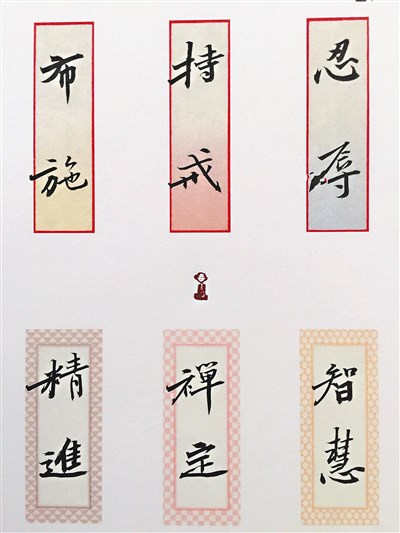 布施
持戒
忍辱
精進
禪定
智慧